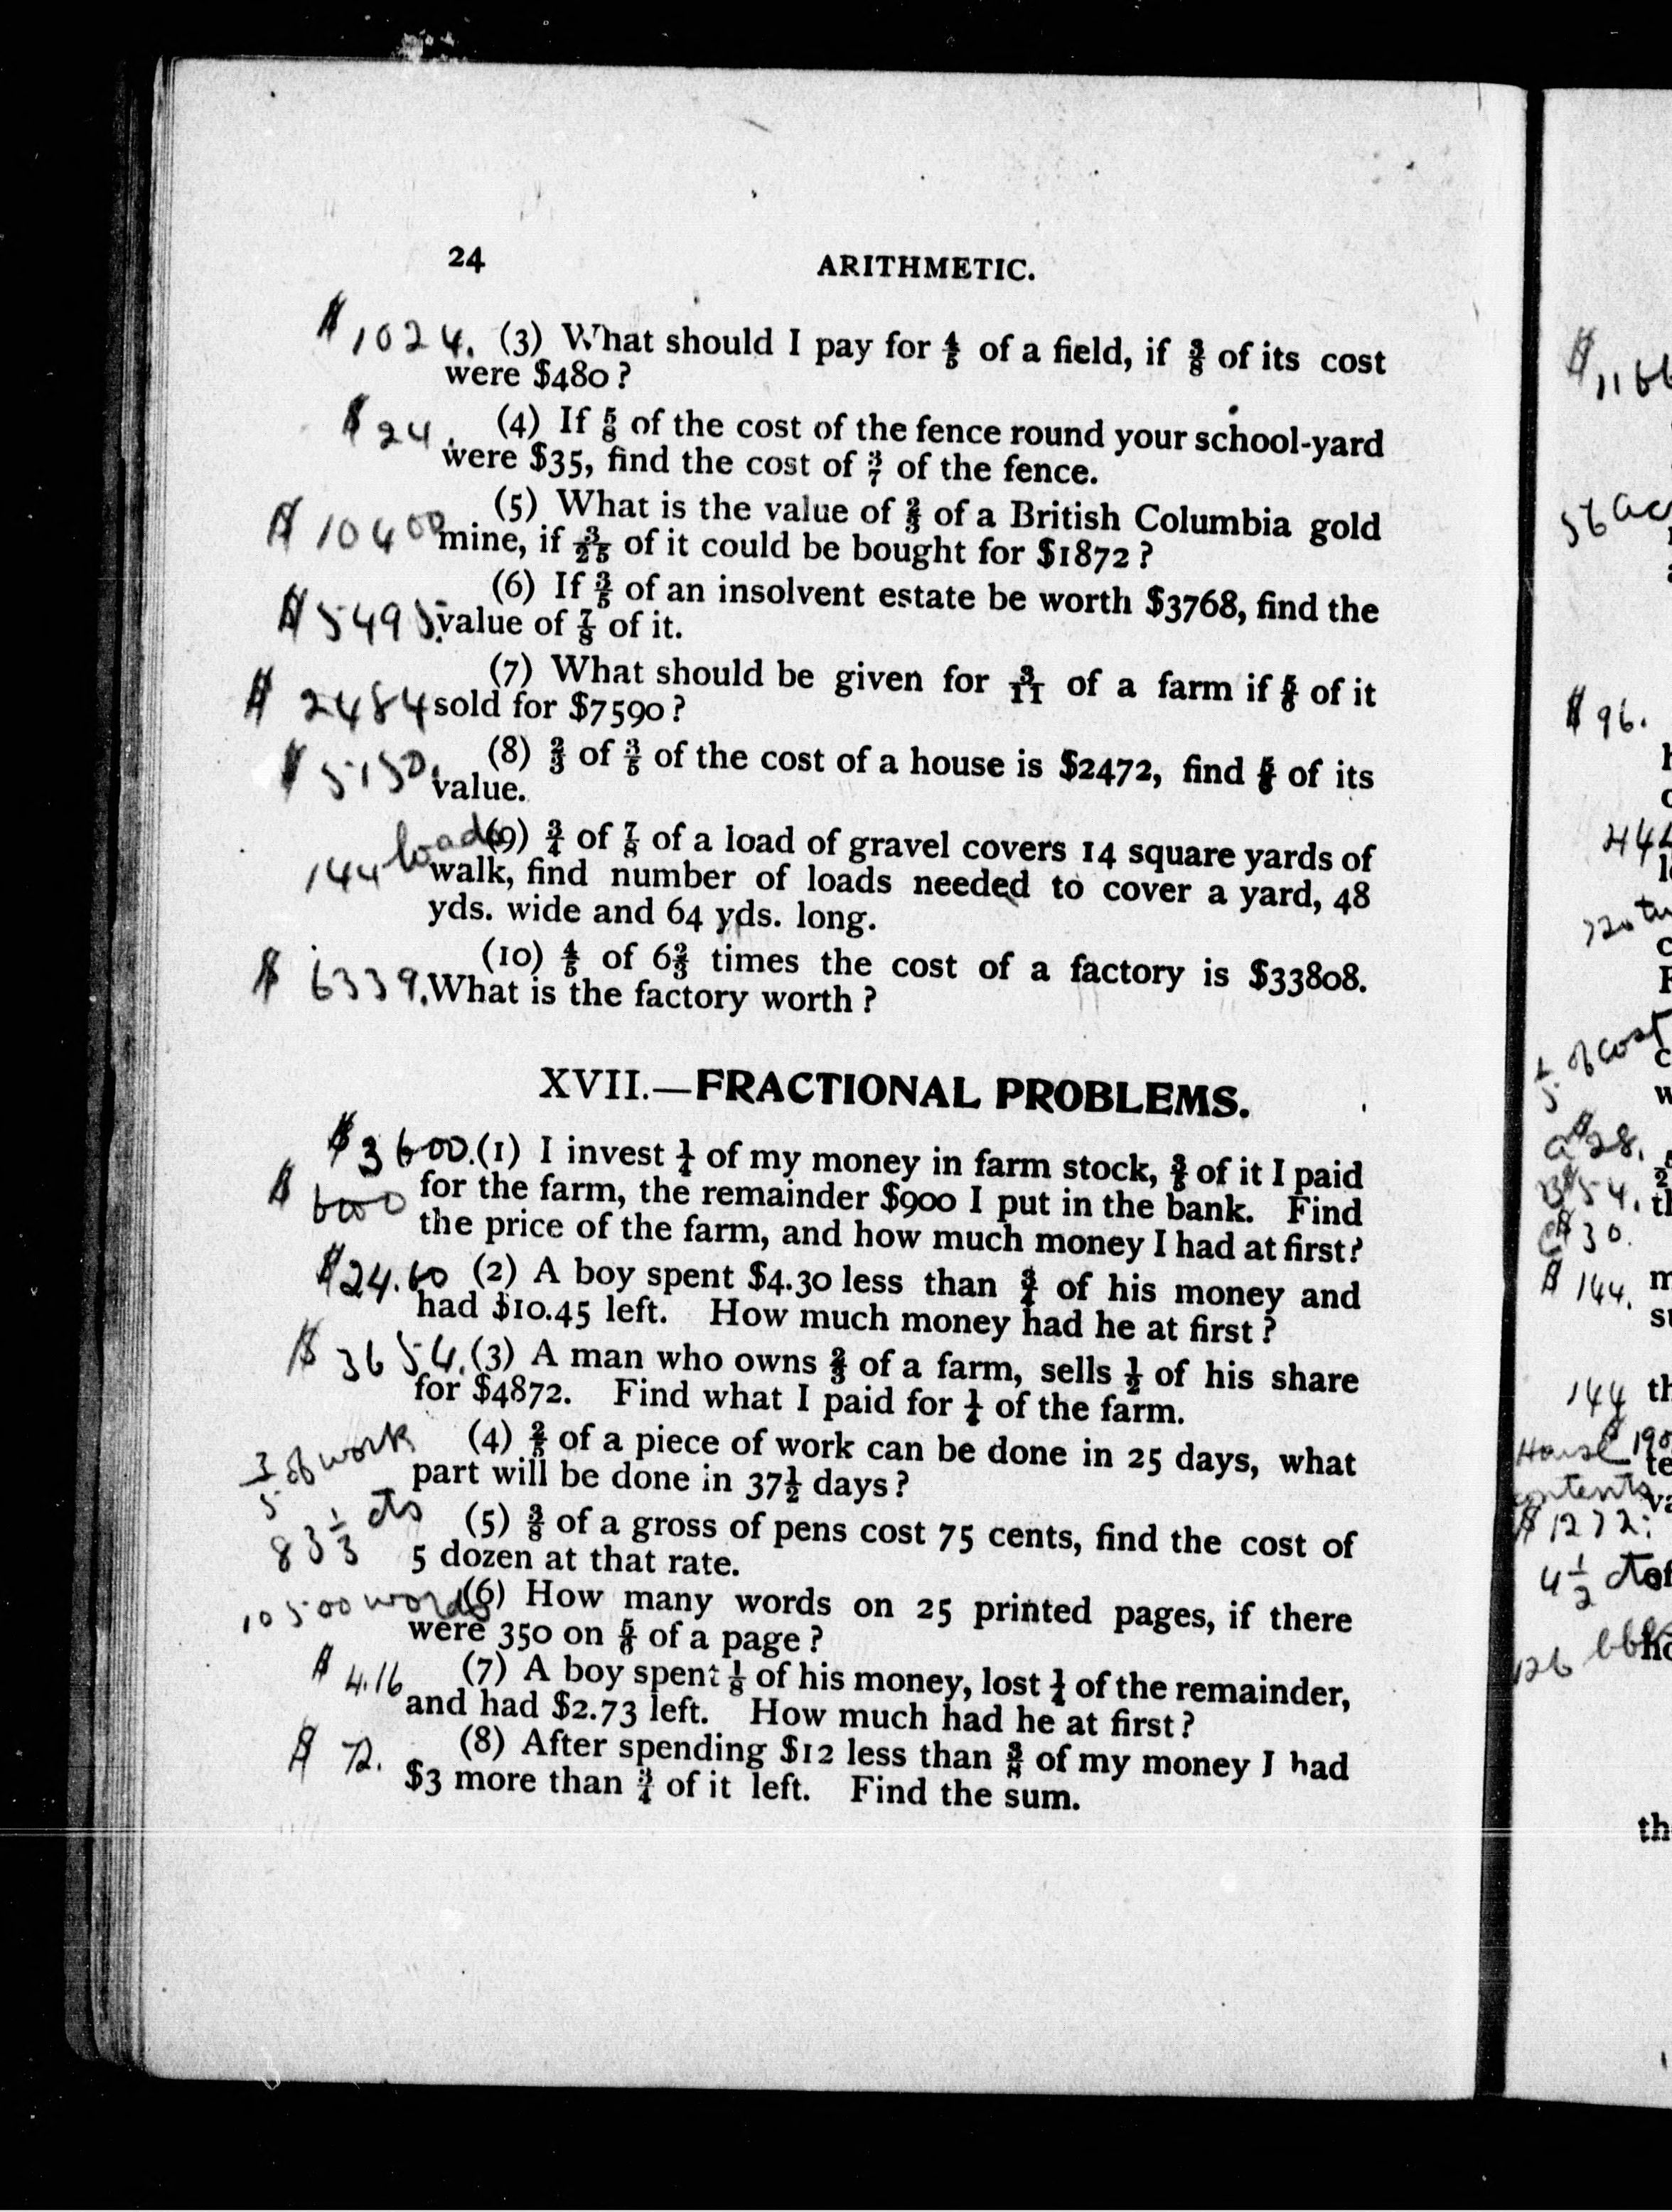 24 ARITHMETIC.
$1024. (3) What should I pay for 4/5 of a field, if 3/8 of its cost
were $480?
$24. (4) If 5/8 of the cost of the fence round your school-yard
were $35, find the cost of 3/7 of the fence.
(5) What is the value of 2/3 of a British Columbia gold
$10400 mine, if 3/25 of it could be bought for $1872?
(6) If 3/5 of an insolvent estate be worth $3768, find the
$5495. value of 7/8 of it.
(7) What should be given for 3/11 of a farm if 5/6 of it
$2484 sold for $7590?
$5150. (8) 2/3 of 3/5 of the cost of a house is $2472, find 5/6 of its
value.
144 loads (9) 3/4 of 7/8 of a load of gravel covers 14 square yards of
walk, find number of loads needed to cover a yard, 48
yds. wide and 64 yds. long.
(10) 4/5 of 6 2/3 times the cost of a factory is $33808.
$6339. What is the factory worth?
XVII.—FRACTIONAL PROBLEMS.
$3600. (1) I invest 1/4 of my money in farm stock, 3/5 of it I paid
$6000 for the farm, the remainder $900 I put in the bank. Find
the price of the farm, and how much money I had at first?
$24.60 (2) A boy spent $4.30 less than 3/4 of his money and
had $10.45 left. How much money had he at first?
$3654. (3) A man who owns 2/3 of a farm, sells 1/2 of his share
for $4872. Find what I paid for 1/4 of the farm.
3/5 of work (4) 2/5 of a piece of work can be done in 25 days, what
part will be done in 37 1/2 days?
83 1/3 cts (5) 3/8 of a gross of pens cost 75 cents, find the cost of
5 dozen at that rate.
10500 words (6) How many words on 25 printed pages, if there
were 350 on 5/6 of a page?
$4.16 (7) A boy spent 1/8 of his money, lost 1/4 of the remainder,
and had $2.73 left. How much had he at first?
$72. (8) After spending $12 less than 3/8 of my money I had
$3 more than 3/4 of it left. Find the sum.
$96.
1/5 of cost
$28.
$54.
$30.
$144.
144
House
contents
$1272.
4 1/2 cts
126 bbls
th